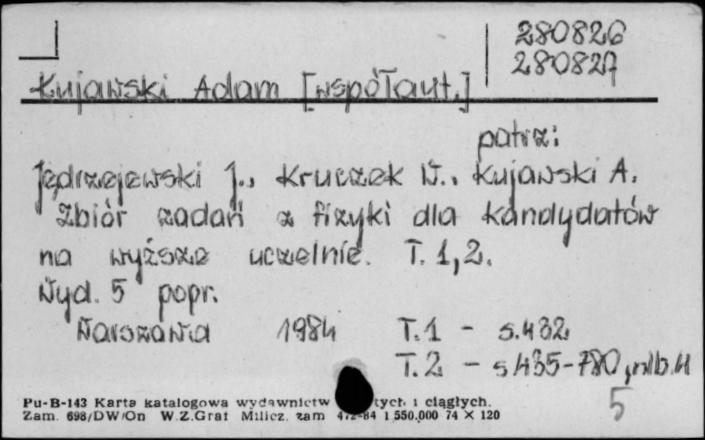 280826
280827
Kujawski Adam [współaut.]
patrz:
Jędrzejewski J., Kruczek W., Kujawski A.
Zbiór zadań z fizyki dla kandydatów
na wyższe uczelnie. T. 1, 2.
Wyd. 5 popr.
Warszawa 1984 T. 1 - s. 432
T. 2 - s 435-780, nlb. 4
5
Pu-B-143 Karta katalogowa wydawnictw tych i ciągłych.
Zam. 698/DW/On W.Z.Graf Milicz. zam 472-84 1 550.000 74 X 120